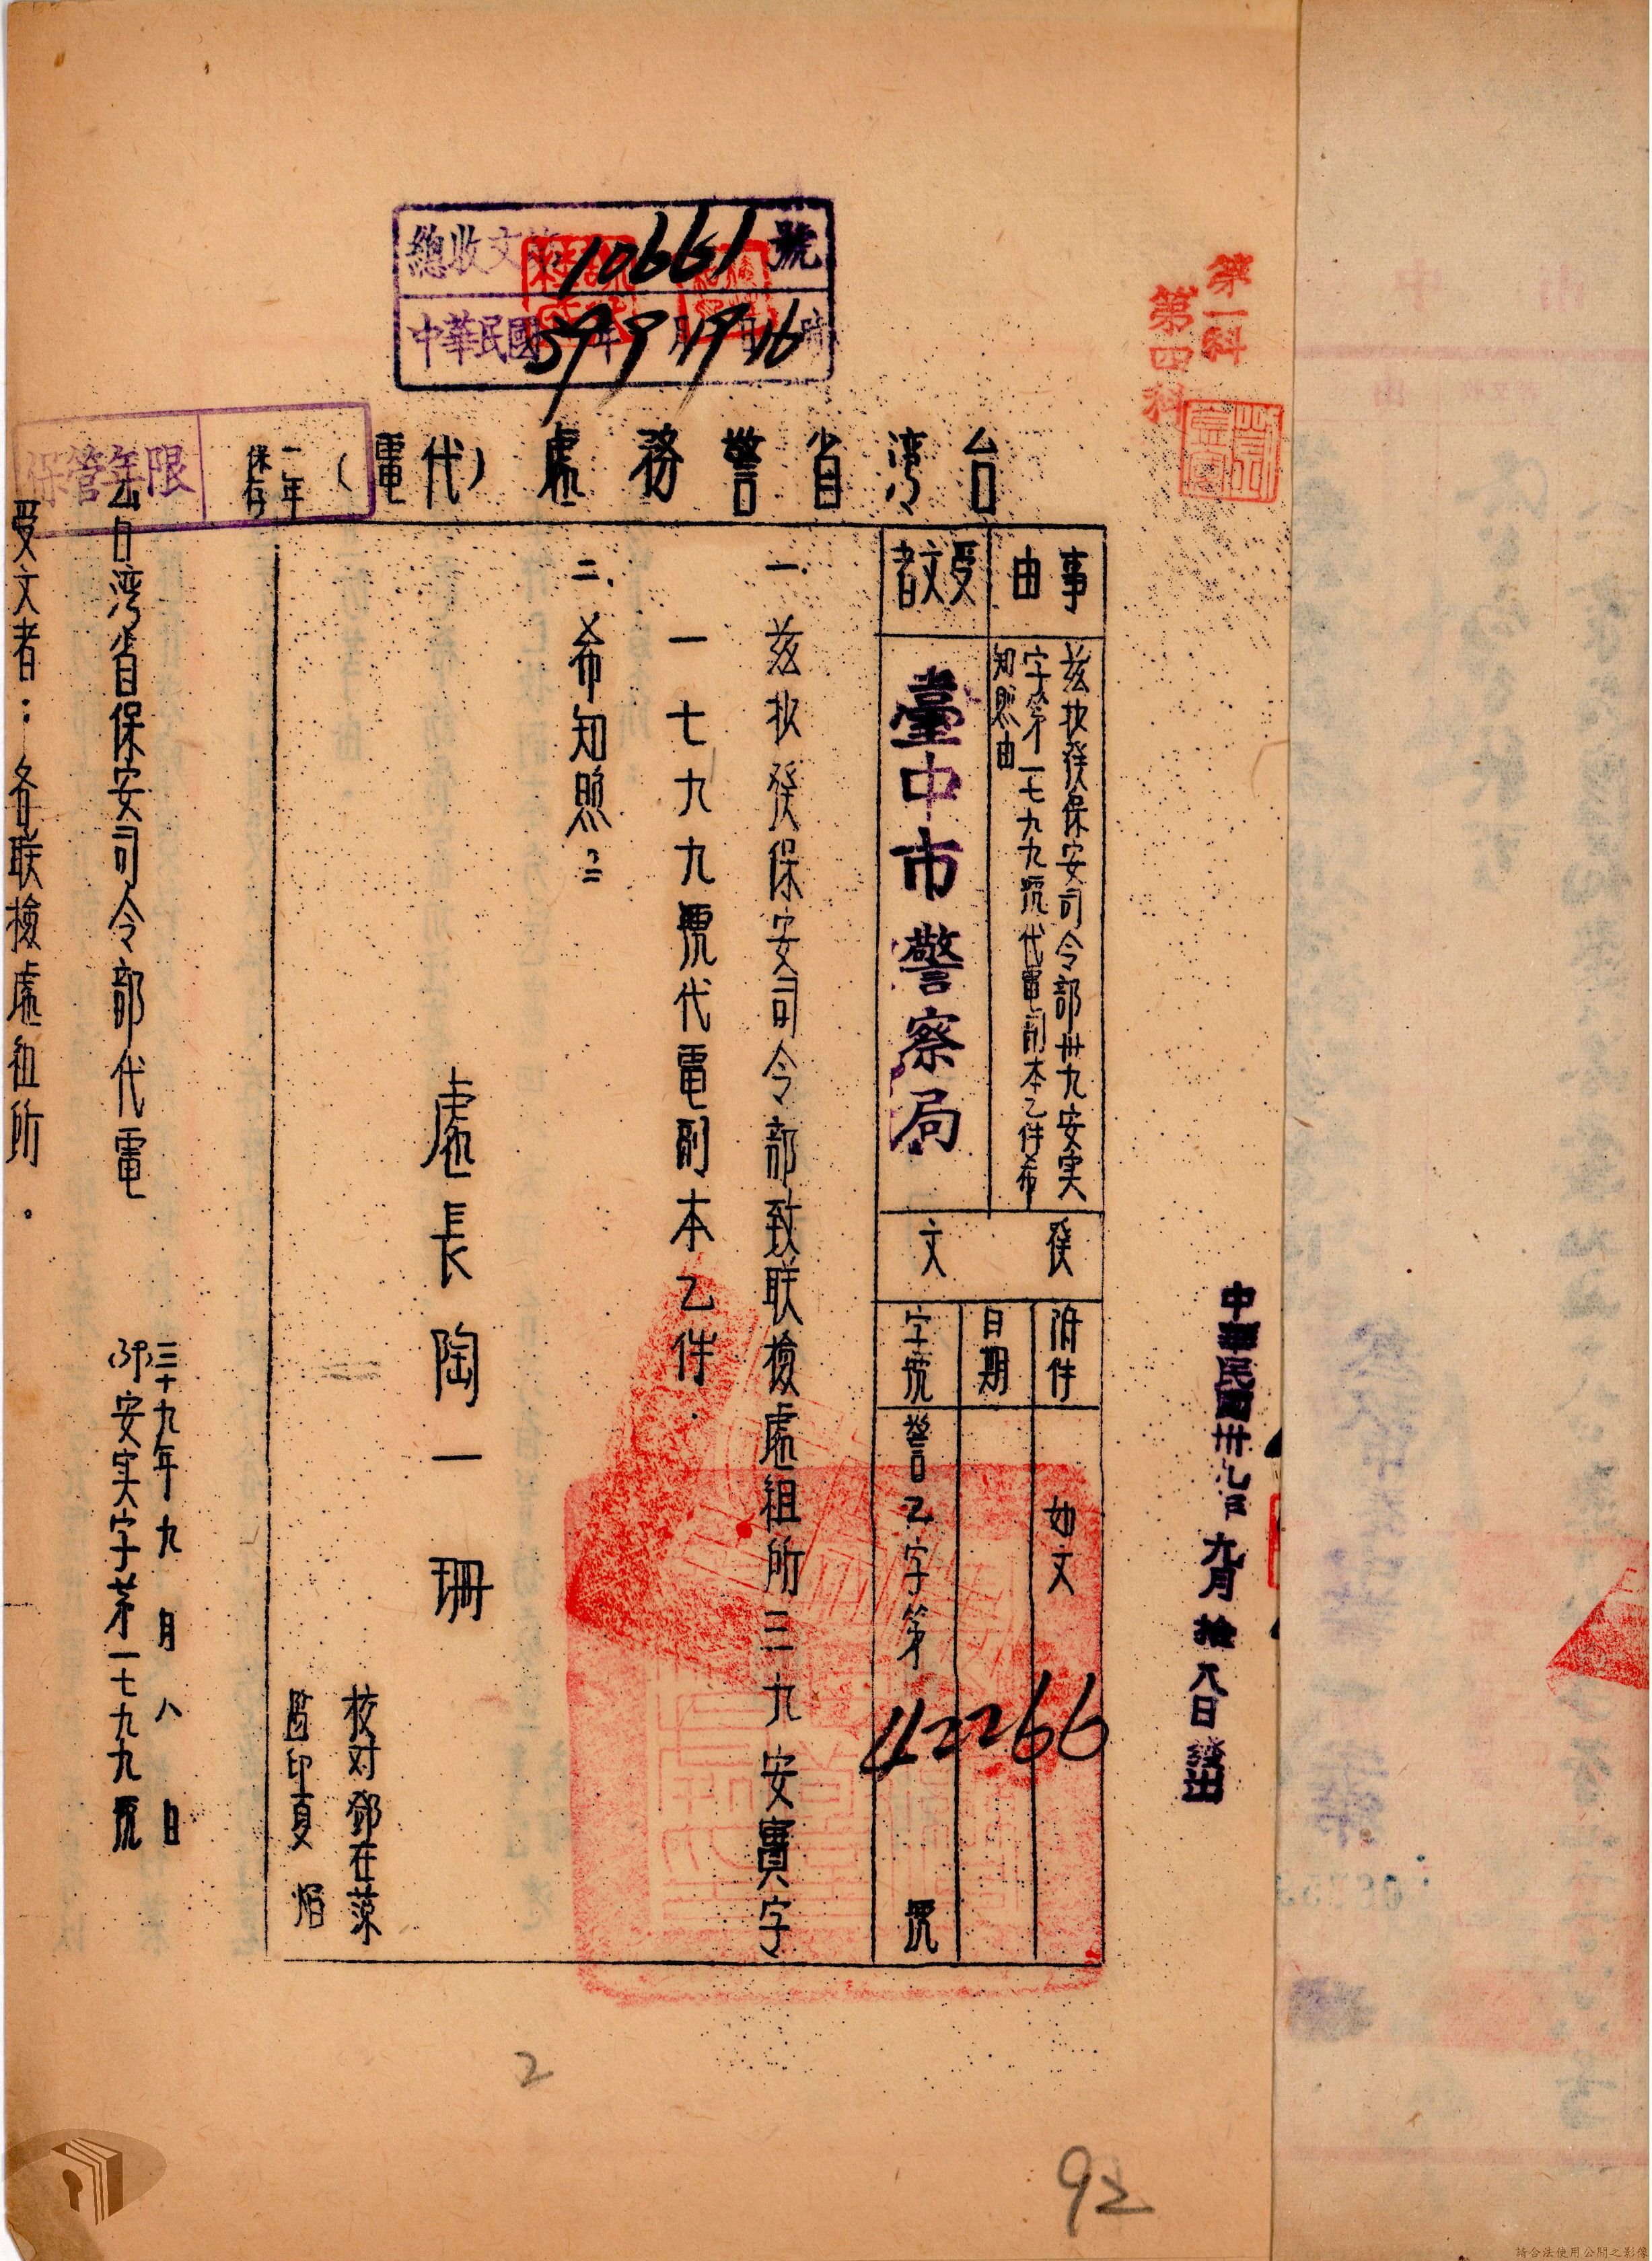 第一科
第四科
中華民國卅九年九月拾八日發出
總收文 10661 號
中華民國 39年 9月 19日 16時
台灣省警務處(代電)
事由
茲抄發保安司令部卅九安実
字第一七九九號代電副本乙件希
知照由
受文者
臺中市警察局
發文
附件
如文
日期
字號
警乙字第
42266
號
一、茲抄發保安司令部致联檢處祖所三九安實字
一七九九號代電副本乙件.
二、希知照:
處長陶一珊
校對鄧在藻
監印夏焰
保管年限
一年
保存
台湾省保安司令部代電
三十九年九月八日
(39)安实字第一七九九號
受文者:各联檢處组所.
2
92
請合法使用公開之影像